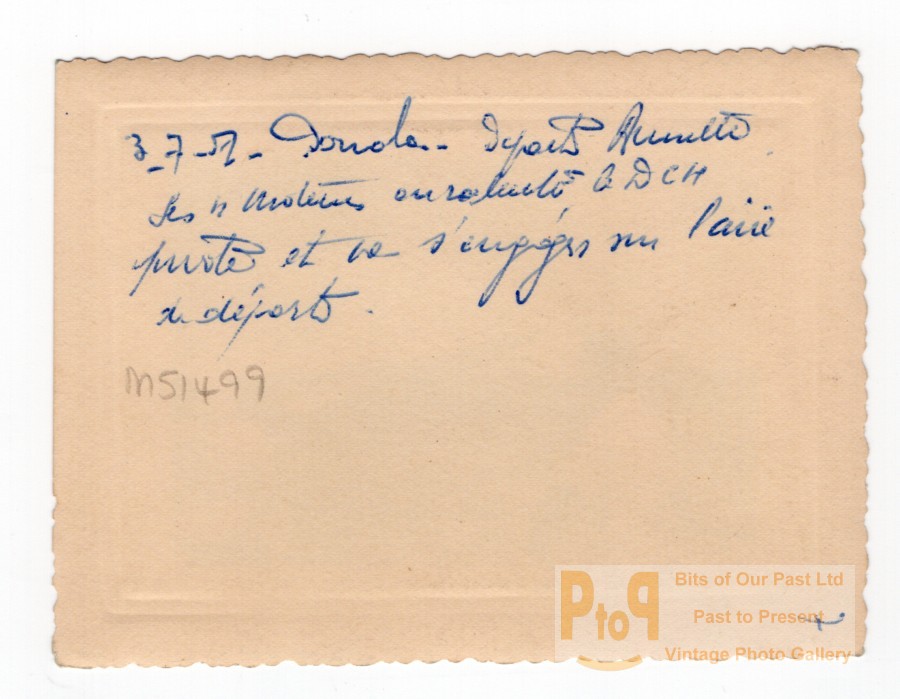 3-7-51 - Douala - Départ Annette
Ses 4 moteurs au ralenti le DC4
pivote et va s'engager sur l'aire
de départ.
M51499
PtoP
Bits of Our Past Ltd
Past to Present
Vintage Photo Gallery